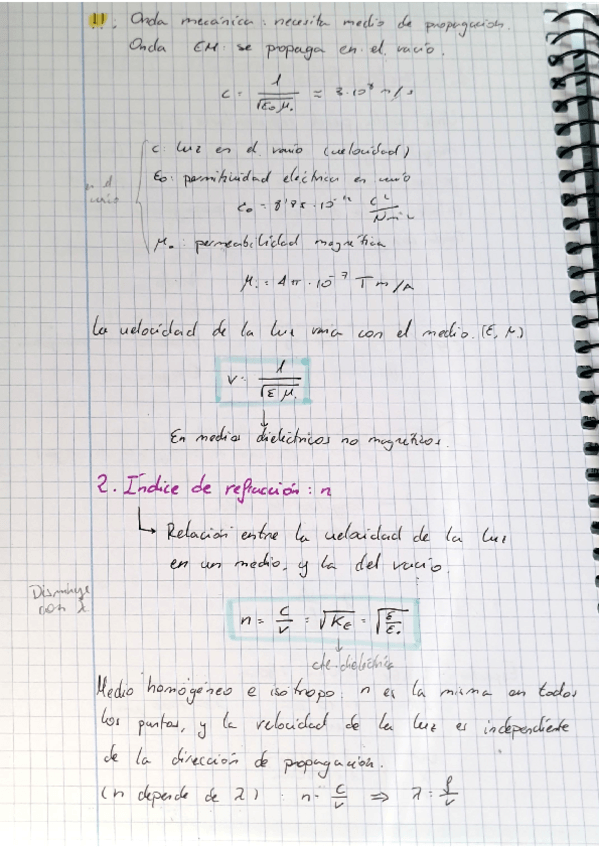 !! Onda mecánica: necesita medio de propagación.
Onda EM: se propaga en el vacío.
c = 1/√(ε₀ μ₀) ≈ 3·10⁸ m/s
c: luz en el vacío (velocidad)
ε₀: permitividad eléctrica en vacío
en el vacío
ε₀ = 8'85·10⁻¹² C²/Nm²
μ₀: permeabilidad magnética
μ₀ = 4π·10⁻⁷ T m/A
La velocidad de la luz varía con el medio. (ε, μ)
v = 1/√(ε μ₀)
↓
En medios dieléctricos no magnéticos.
2. Índice de refracción: n
↳ Relación entre la velocidad de la luz
en un medio, y la del vacío.
Disminuye
con λ
n = c/v = √Kε = √(ε/ε₀)
↓
cte. dieléctrica
Medio homogéneo e isótropo: n es la misma en todos
los puntos, y la velocidad de la luz es independiente
de la dirección de propagación.
(n depende de λ) : n = c/v ⇒ λ = f/v